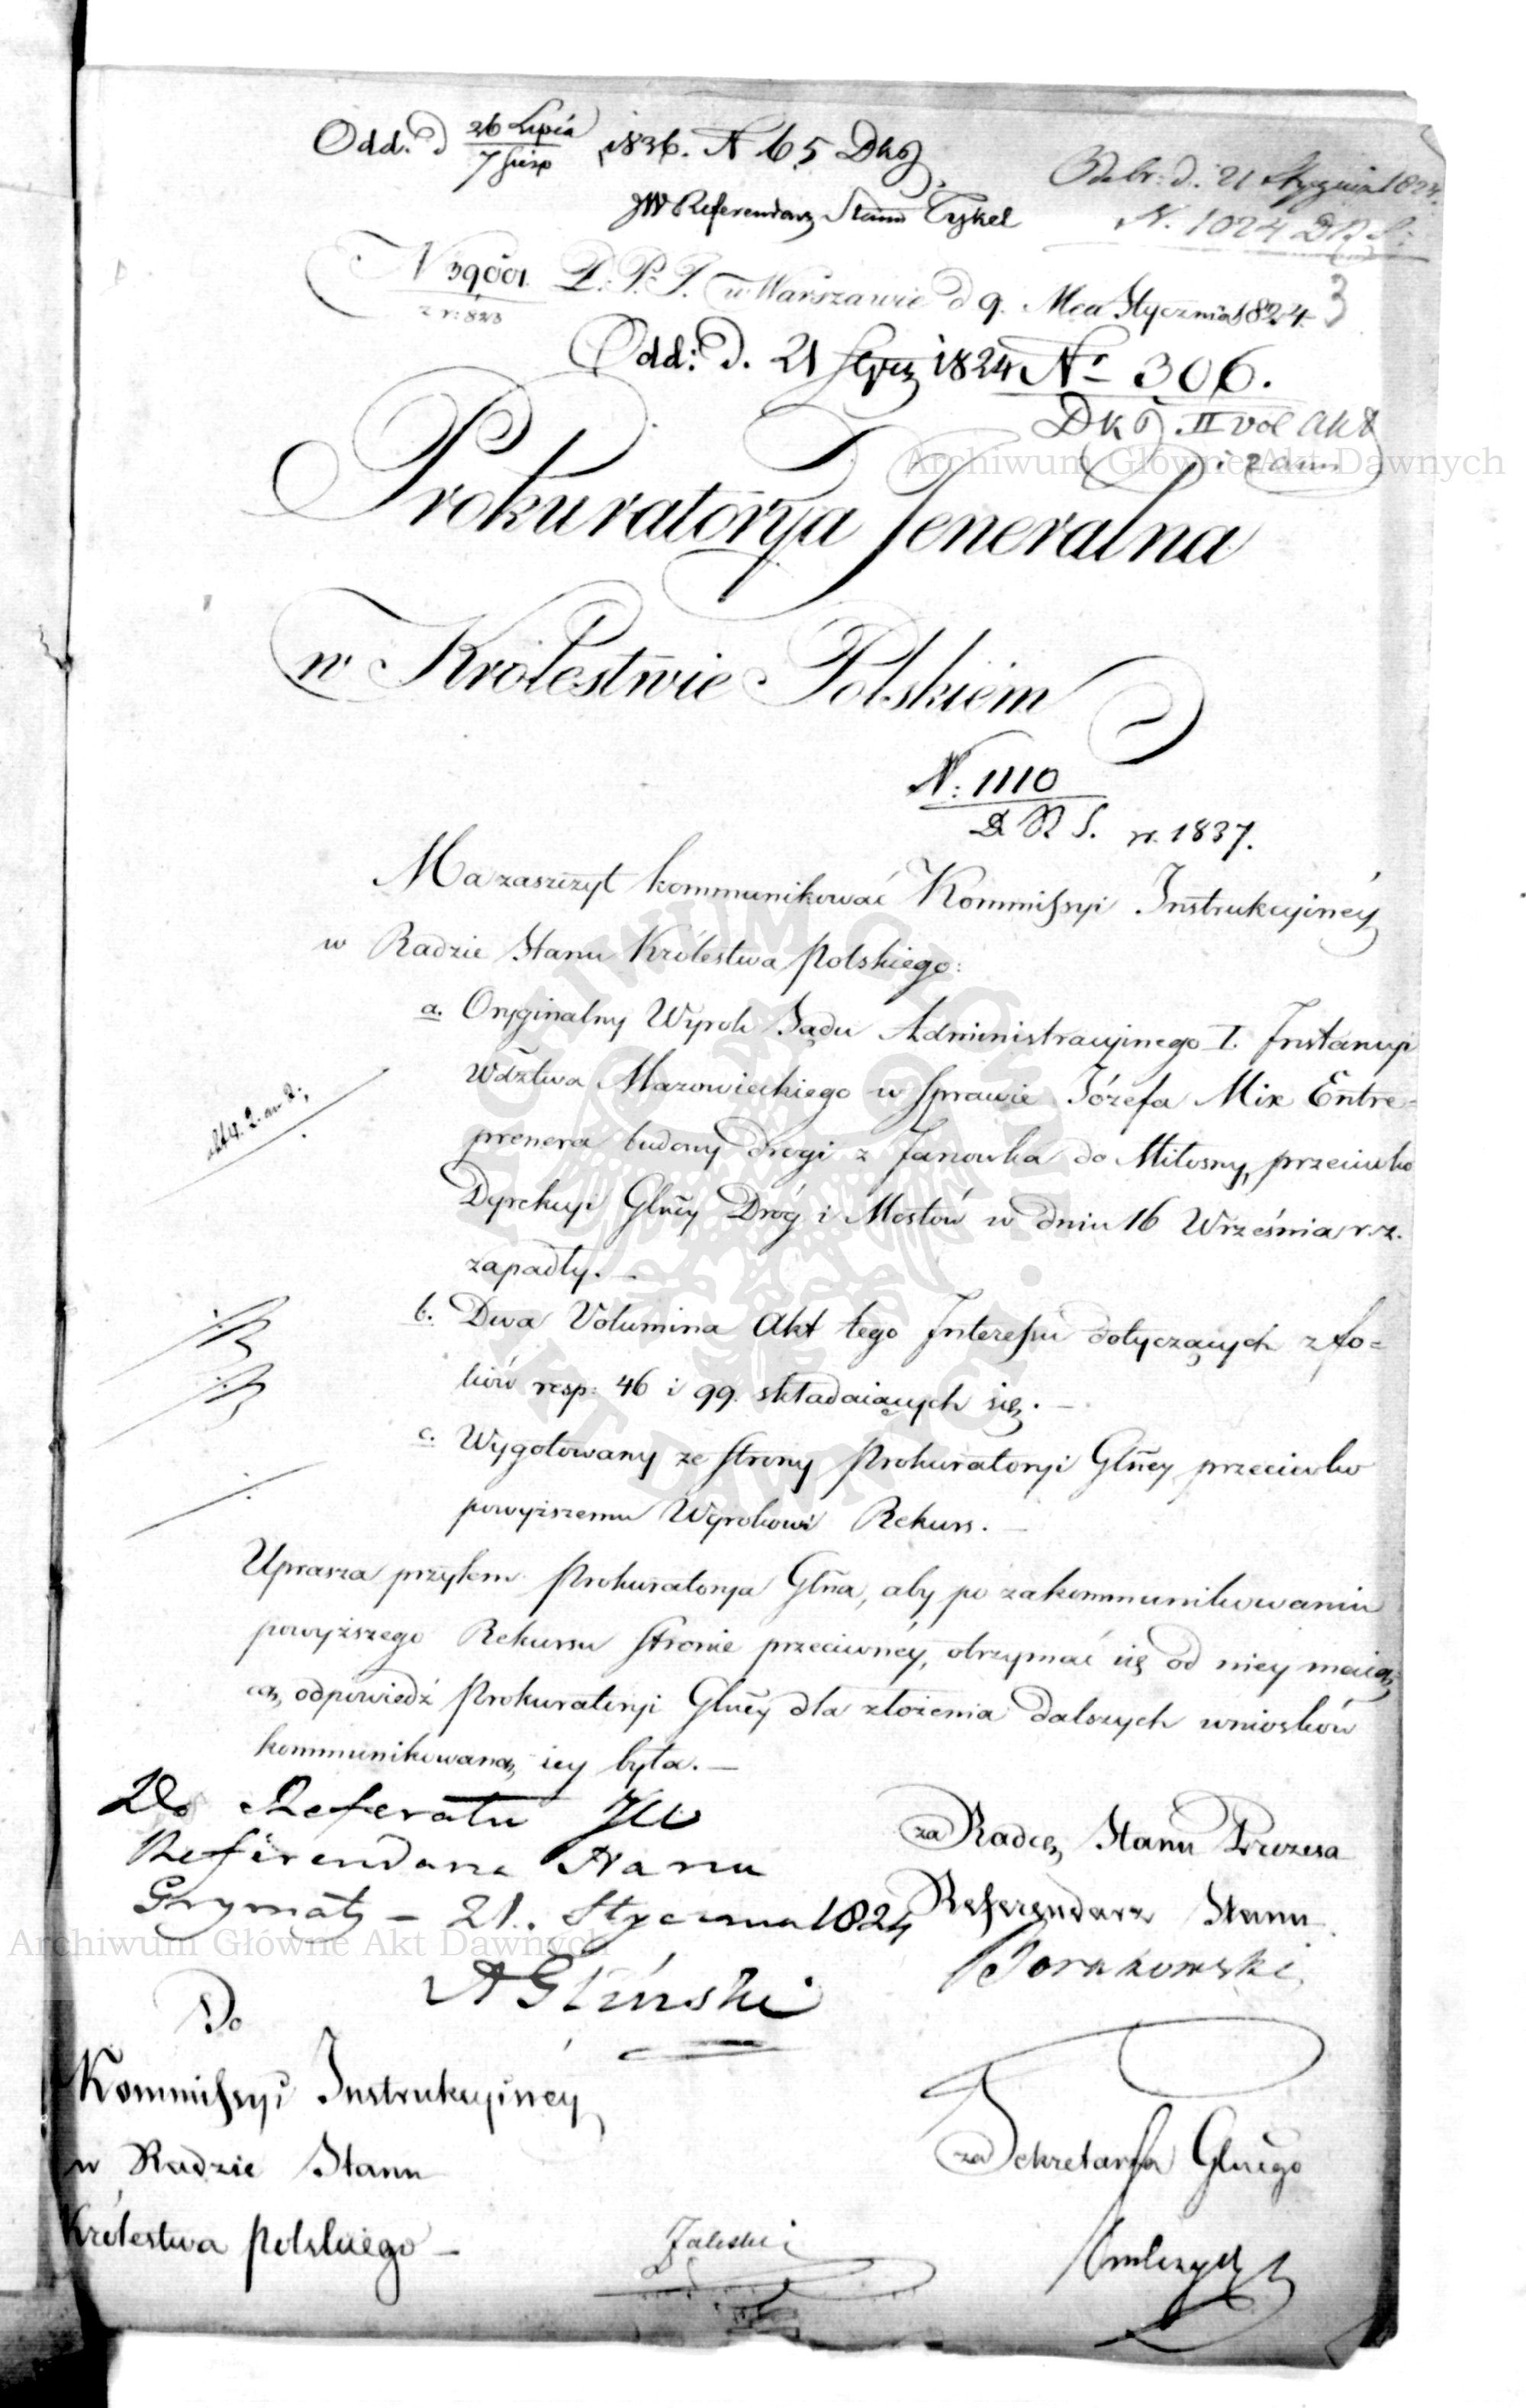 Odd: d 26 Lipia / 7 Sierp 1836. N 65 DKS
JW Referendarz Stanu Tykel
Odebr: d. 21 Stycznia 1824.
N. 1024 D R S:
N 39001. D. P. J. w Warszawie d 9. Mca Stycznia 1824. 3
z r: 823
Odd: d. 21 Stycz 1824 Nr 306.
II vol akt
Prokuratorya Jeneralna
w Królestwie Polskiem
N. 1110
D R S. r. 1837.
Ma zaszczyt kommunikować Kommissyi Instrukcyiney
w Radzie Stanu Królestwa Polskiego:
a. Oryginalny Wyrok Sądu Administracyjnego I. Instancyi
Wdztwa Mazowieckiego w sprawie Józefa Mix Entre=
prenera budowy drogi z Janowka do Miłosny, przeciwko
Dyrekcyi Głney Dróg i Mostów w dniu 16 Września r. z.
zapadły. —
b. Dwa Volumina Akt tego Interessu dotyczących z fo=
liów resp: 46 i 99. składaiących się. —
c. Wygotowany ze strony Prokuratoryi Głney przeciwko
powyższemu Wyrokowi Rekurs. —
Uprasza przytem Prokuratorya Głna, aby po zakommunikowaniu
powyższego Rekursu stronie przeciwnéy, otrzymać się od niey maią=
ca, odpowiedź Prokuratoryi Głney dla złożenia dalszych wniosków
kommunikowaną iey była. —
Do Referatu JW
Referendarza Stanu
Grymały – 21. Stycznia 1824
A Gliński
za Radcę Stanu Prezesa
Referendarz Stanu
Do
Kommissyi Instrukcyiney
w Radzie Stanu
Królestwa Polskiego —
za Sekretarza Głnego
Zaleski
Archiwum Główne Akt Dawnych
Archiwum Główne Akt Dawnych
ARCHIWUM GŁÓWNE AKT DAWNYCH